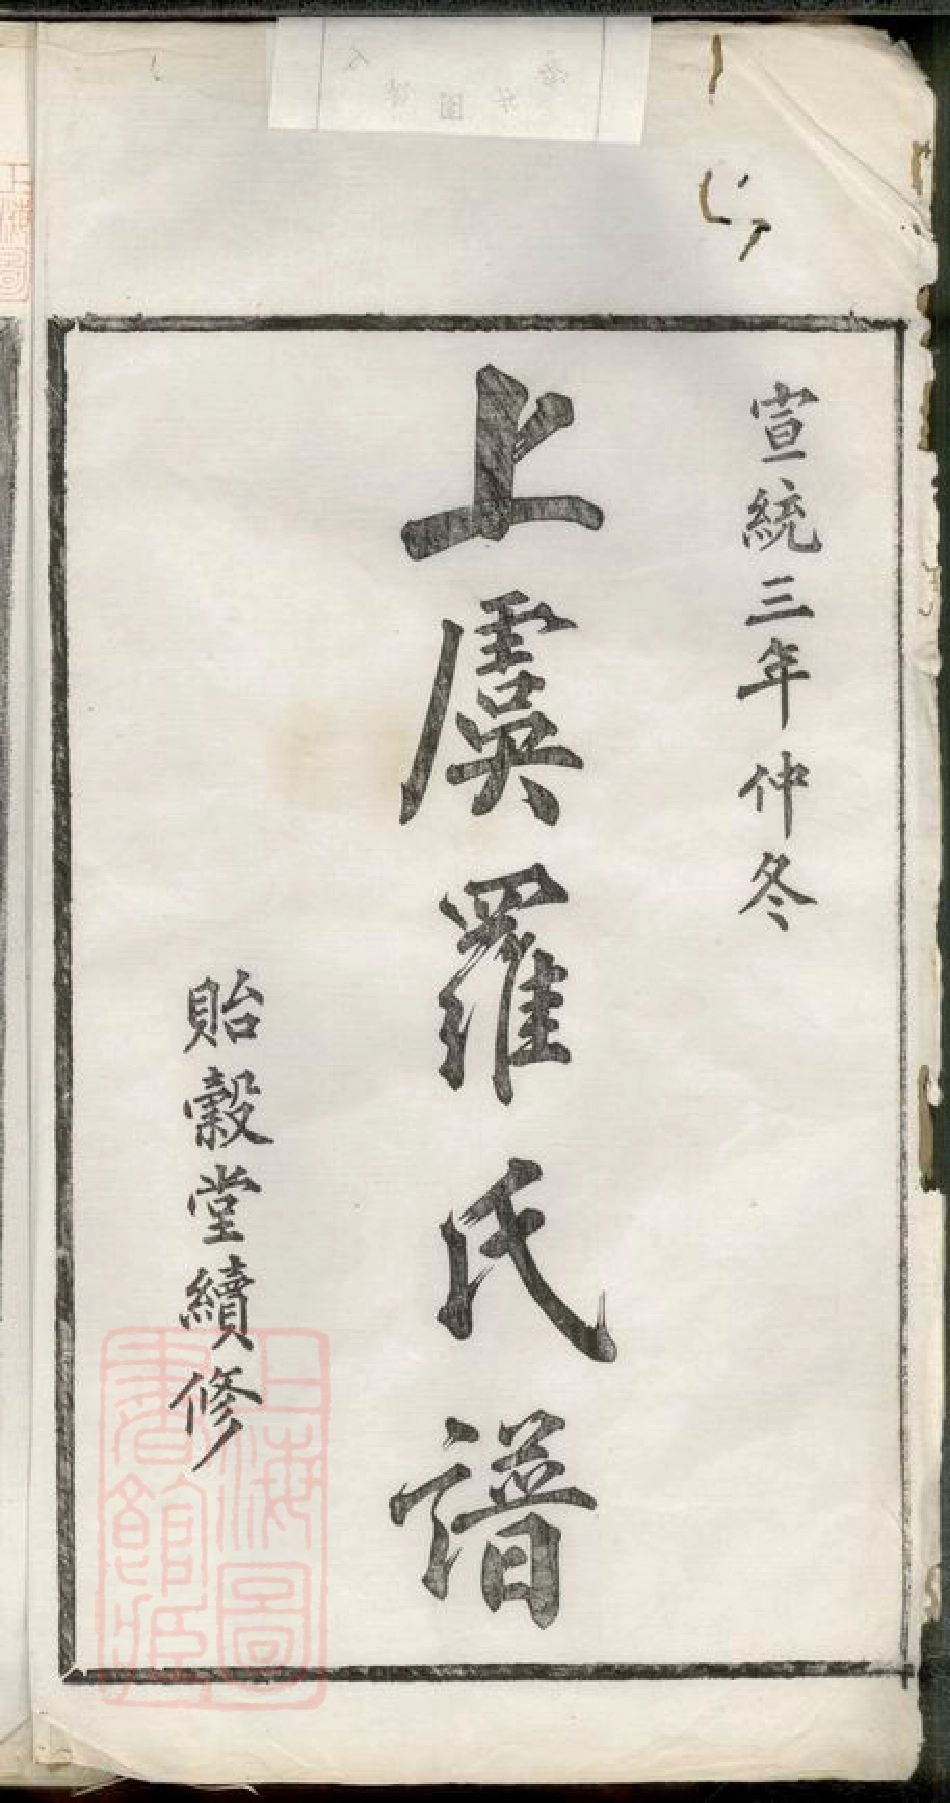 宣統三年仲冬
上虞羅氏譜
貽穀堂續修
上海圖
書館藏